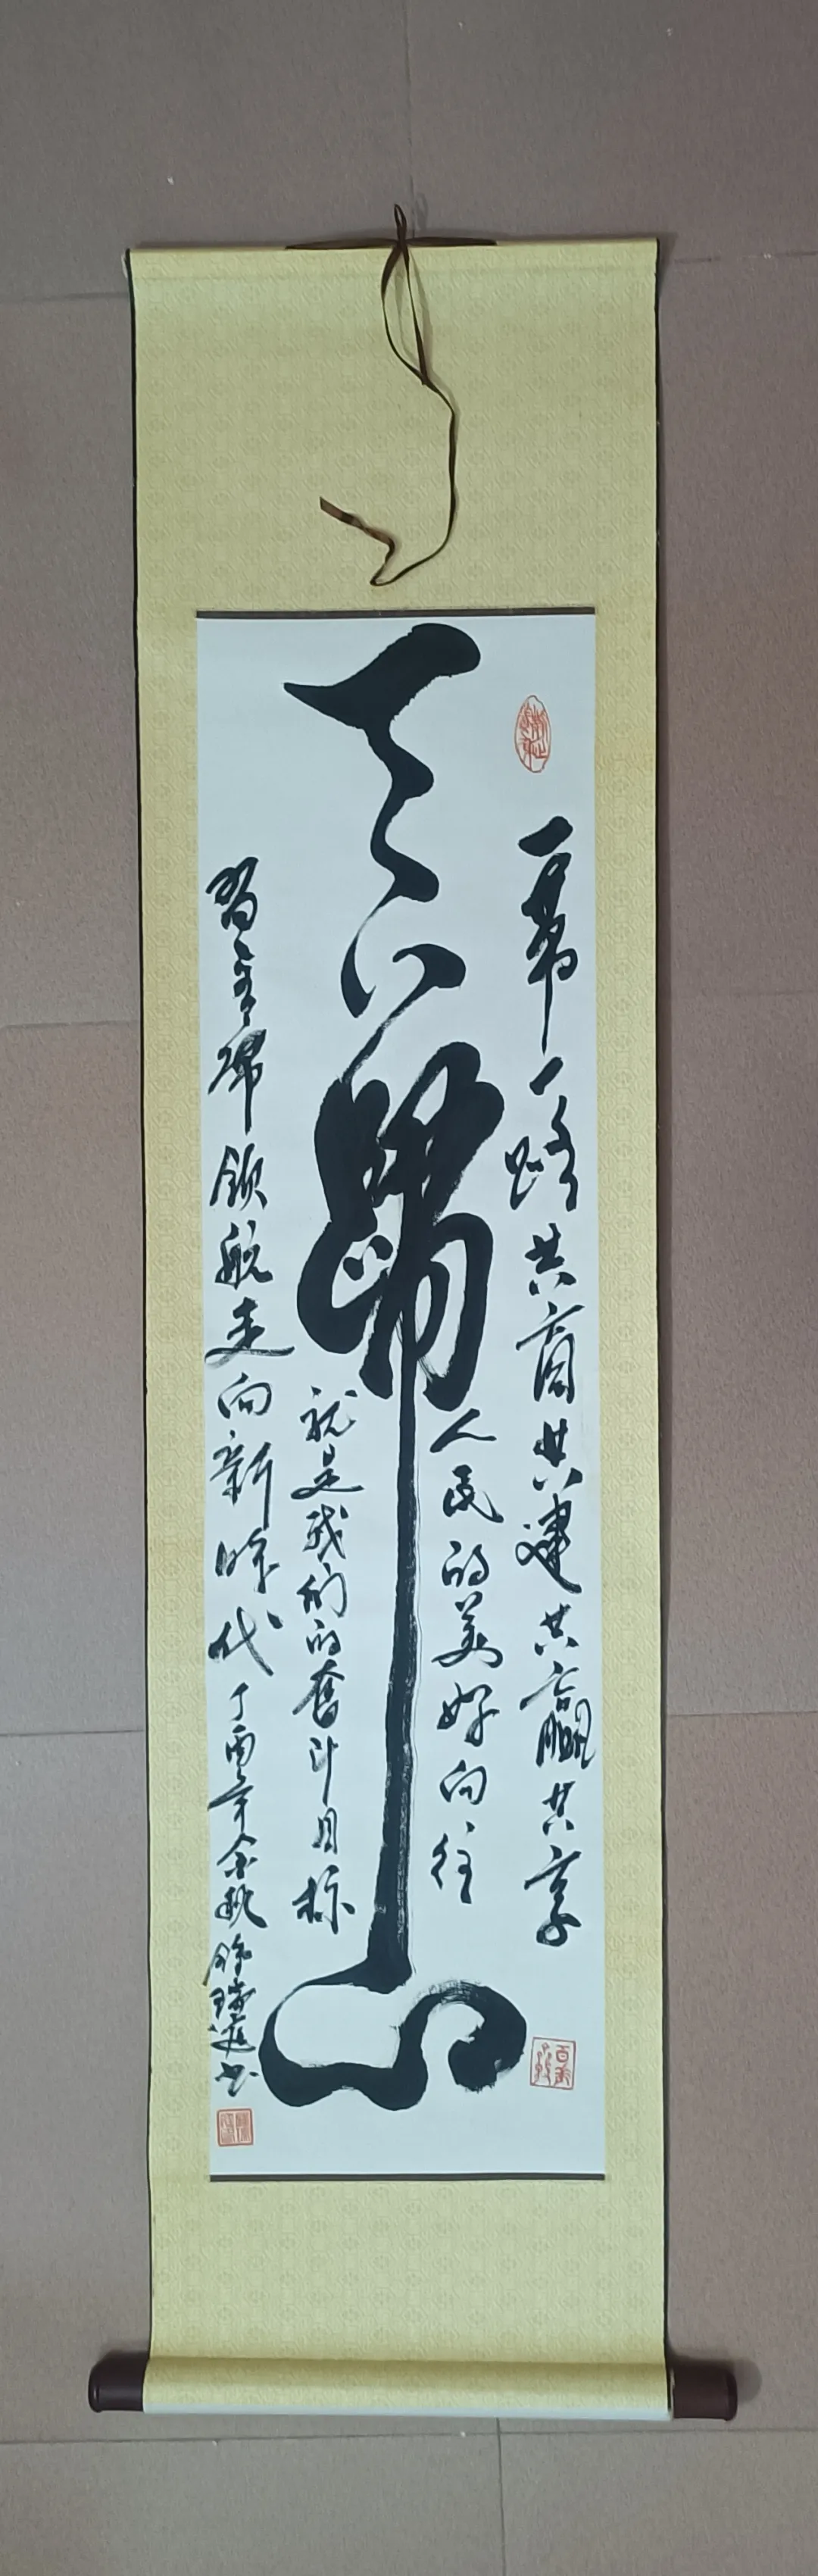 一带一路共商共建共赢共享
人民的美好向往
天下归心
就是我们的奋斗目标
习主席领航走向新时代
丁酉年金秋徐瑞莲书